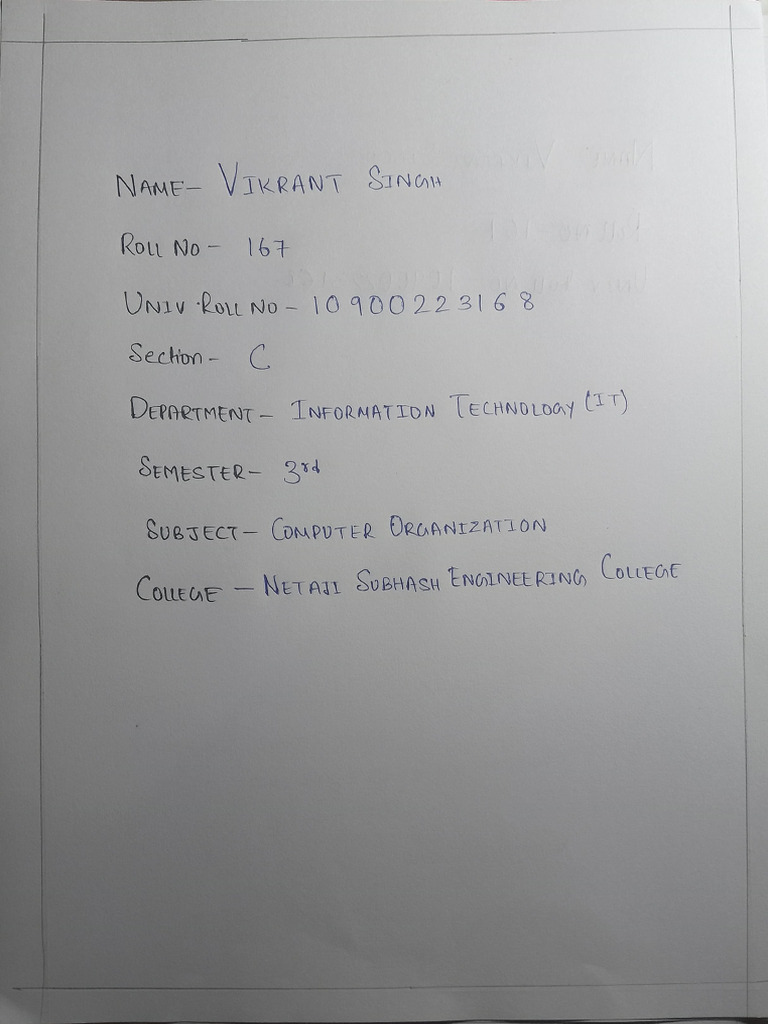 NAME- VIKRANT SINGH
ROLL NO- 167
UNIV. ROLL NO- 10900223168
Section- C
DEPARTMENT- INFORMATION TECHNOLOGY (IT)
SEMESTER- 3rd
SUBJECT- COMPUTER ORGANIZATION
COLLEGE - NETAJI SUBHASH ENGINEERING COLLEGE